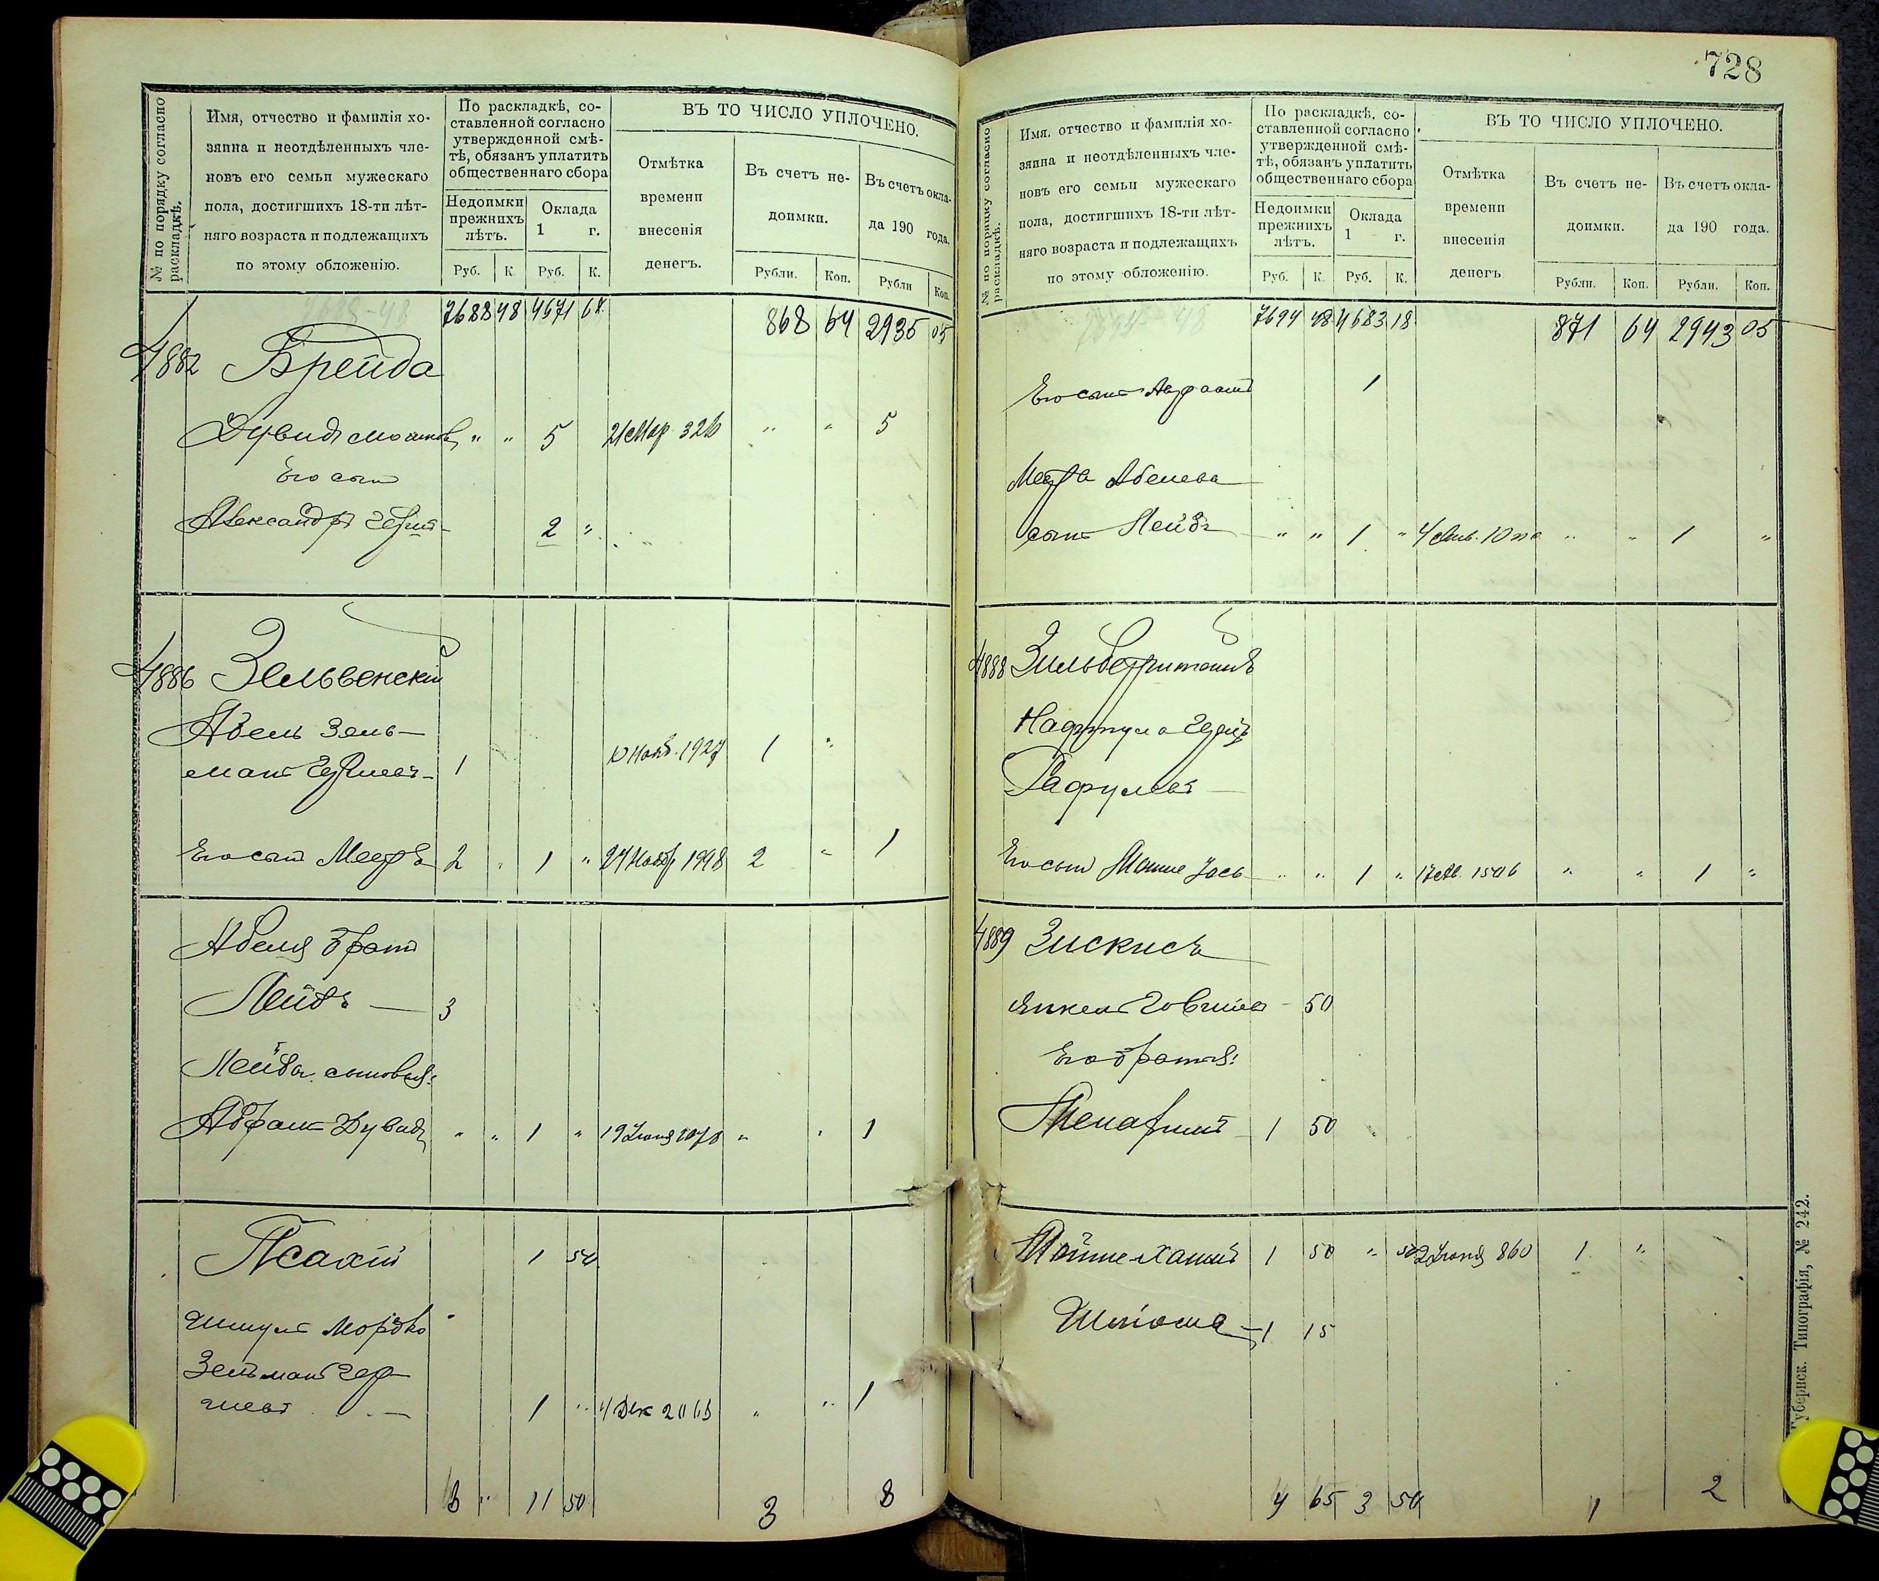 728
№ по порядку согласно раскладкѣ.
Имя, отчество и фамилія хо-
зяина и неотдѣленныхъ чле-
новъ его семьи мужескаго
пола, достигшихъ 18-ти лѣт-
няго возраста и подлежащихъ
по этому обложенію.
По раскладкѣ, со-
ставленной согласно
утвержденной смѣ-
тѣ, обязанъ уплатить
общественнаго сбора
Недоимки
прежнихъ
лѣтъ.
Оклада
1 г.
Руб. К. Руб. К.
ВЪ ТО ЧИСЛО УПЛОЧЕНО.
Отмѣтка
времени
внесенія
денегъ.
Въ счетъ не-
доимки.
Въ счетъ окла-
да 190 года.
Рубли. Коп. Рубли Коп.
7688 48 4671 68 868 64 2935 05
4882 Брейда
5 21 Мар. 326 " " 5
Его сынъ
Александръ 2 "
4886 Зельвенскій
Абель Зель-
манъ 1 1927 1 "
Его сынъ Мееръ 2 " 1 " 24 Нояб 1948 2 " 1
Абеля братъ
Лейба — 3
Лейбы сыновья:
Абрамъ " " 1 " 19 Іюня " " 1
Псахій 1 50
Шмуль Мордхо
Зельманъ Гер-
шевъ — 1 " 4 Дек 2065 " " 1
6 " 11 50 3 8
№ по порядку согласно раскладкѣ.
Имя, отчество и фамилія хо-
зяина и неотдѣленныхъ чле-
новъ его семьи мужескаго
пола, достигшихъ 18-ти лѣт-
няго возраста и подлежащихъ
по этому обложенію.
По раскладкѣ, со-
ставленной согласно
утвержденной смѣ-
тѣ, обязанъ уплатить
общественнаго сбора
Недоимки
прежнихъ
лѣтъ.
Оклада
1 г.
Руб. К. Руб. К.
ВЪ ТО ЧИСЛО УПЛОЧЕНО.
Отмѣтка
времени
внесенія
денегъ
Въ счетъ не-
доимки.
Въ счетъ окла-
да 190 года.
Рубли. Коп. Рубли. Коп.
7694 48 4683 18 871 64 2943 05
Его сынъ Авраамъ 1
Меера Абелева
сынъ Лейба " " 1 " 4 Янв. " " 1 "
4888 Зильбер
Нафтула
Рафуловъ —
Его сынъ Мовше Іосъ " " 1 " " " 1 "
4889 Зискисъ
Янкель Говшіевъ - 50
Его братья:
1 50
Мовше-Хаимъ 1 50 " 50 2 Іюня 860 1 "
Шліома — 1 15
4 65 3 50 1 2
Губернск. Типографія, № 242.